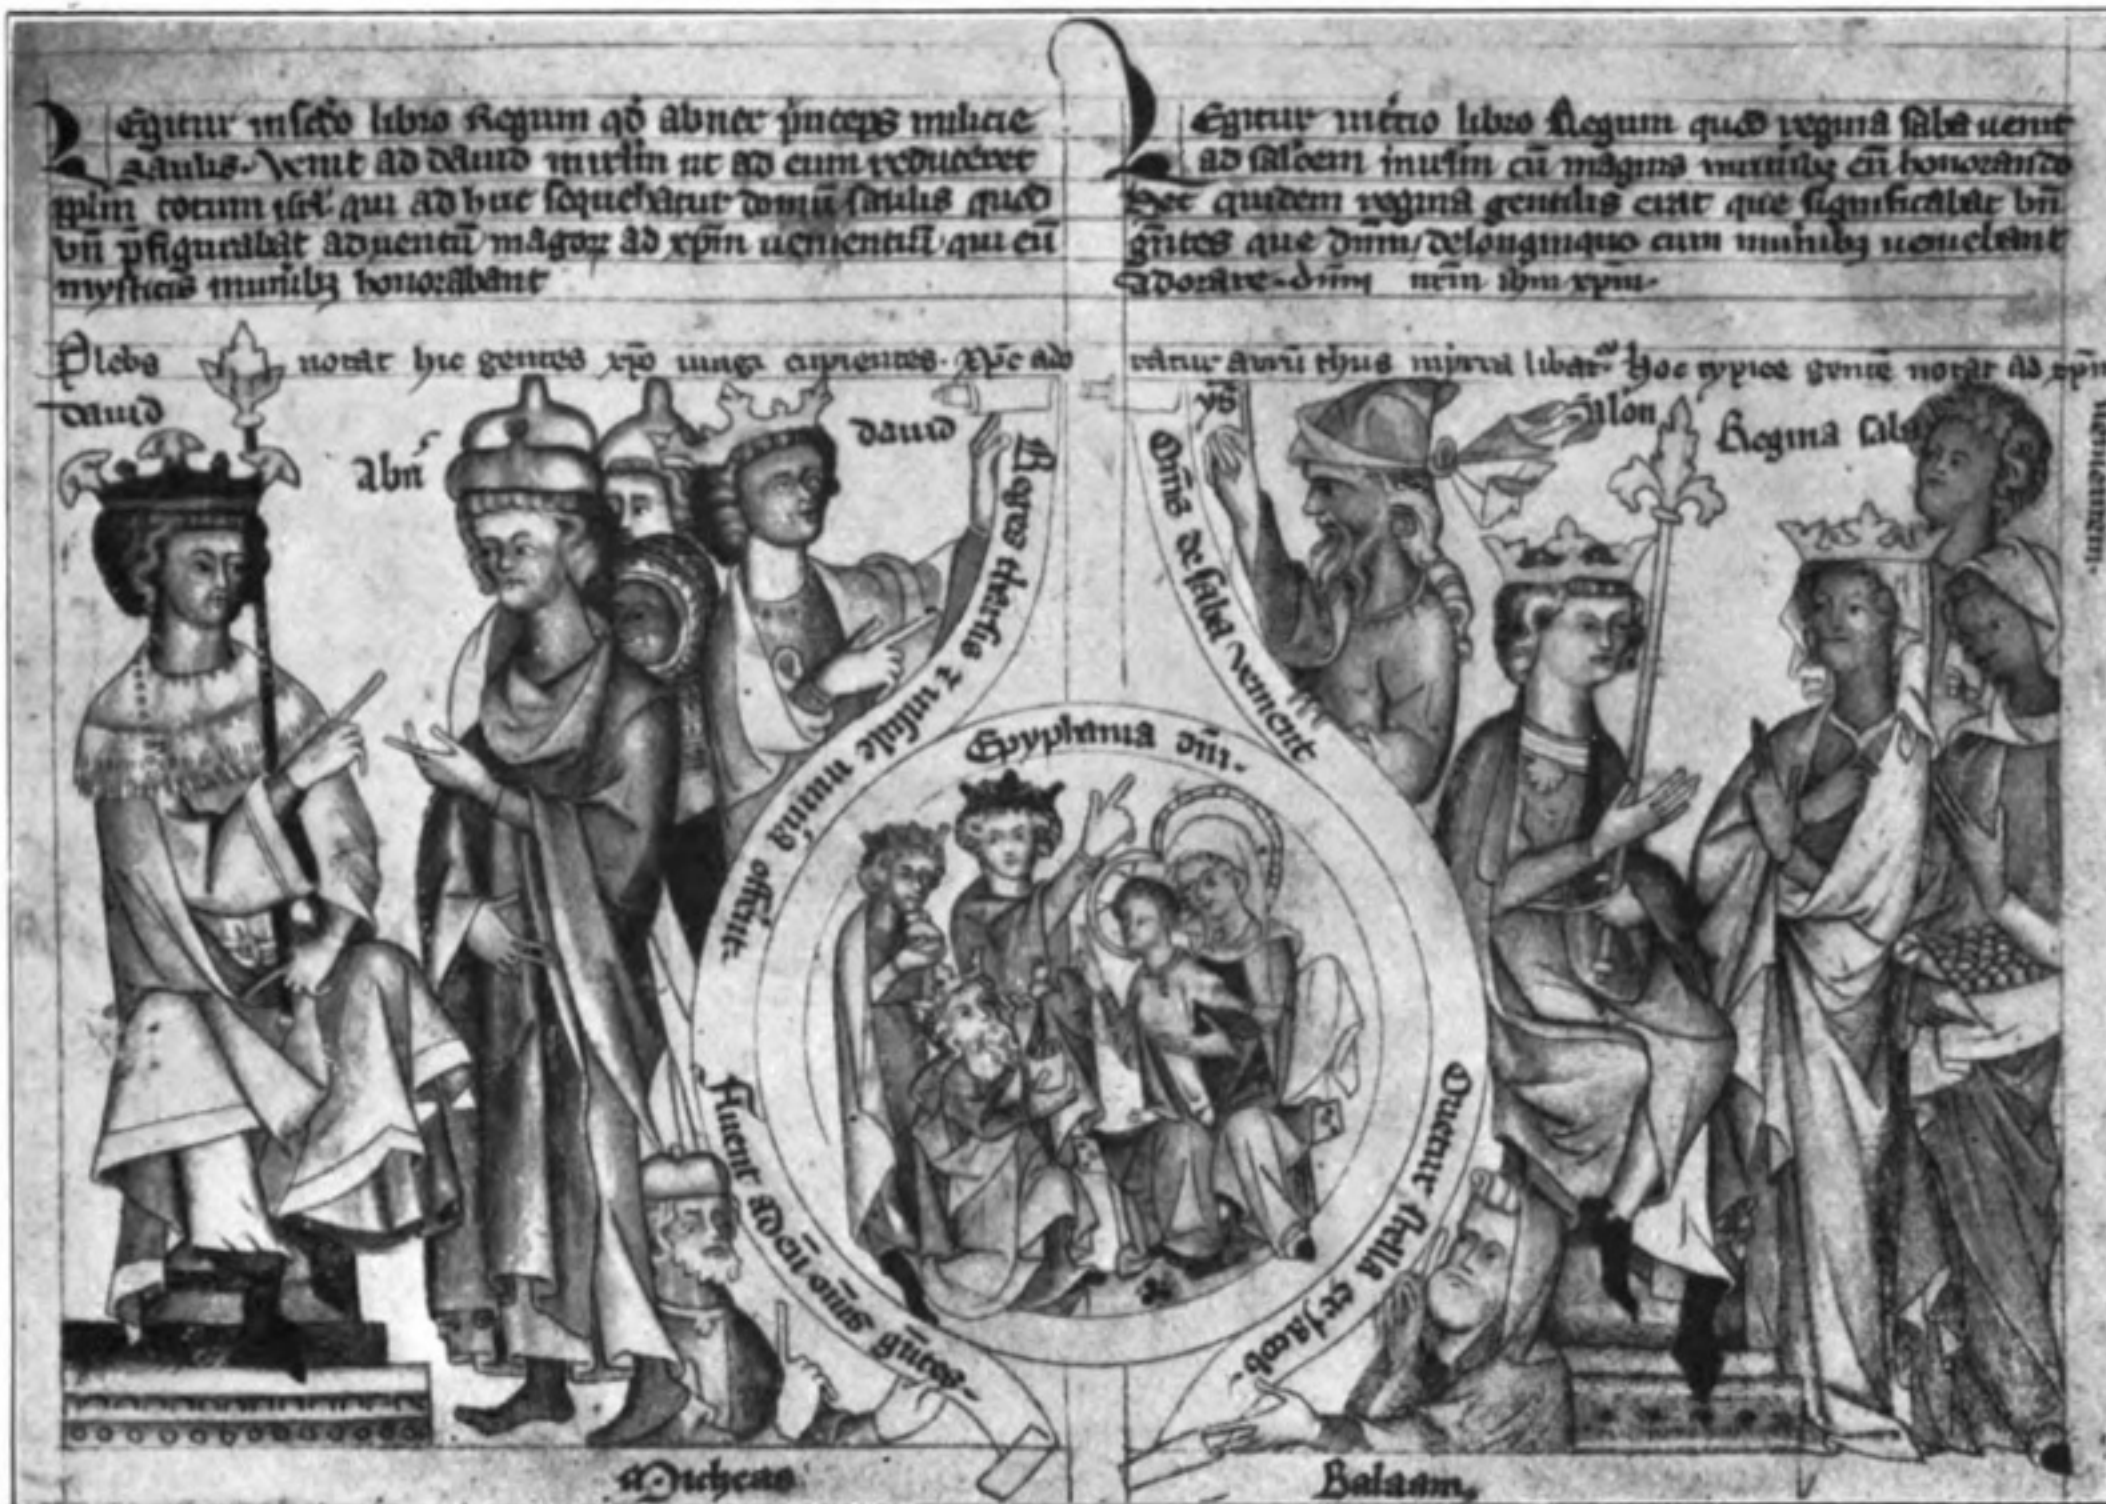 Legitur in scdo libro Regum qd abner pnceps milicie
saulis. Venit ad dauid in irlm ut ad eum reduceret
pplm totum isrl qui adhuc sequebatur domu saulis quod
bn pfigurabat aduentu magor ad xpm uenientiu qui eu
mysticis munibz honorabant
Legitur in tercio libro Regum quod regina saba uenit
ad saloem in irlm cu magnis munibz eu honorando
Hec quidem regina gentilis erat que significabat bn
gntes que dnm de longinquo cum munibz ueniebant
adorare. dnm nrm ihm xpm.
Plebs notat hic gentes xpo iungi cupientes. Xpc ado
ratur auru thus mirra libatr. Hec typice gente notat ad xpm
uenientem.
dauid
abn
dauid
Reges tharsis z insule munia offent.
ys
Oms de saba venient
salon
Regina saba
Epyphania dni.
Fluent ad eu oms gntes.
Orietur stella ex jacob.
Micheas
Balaam.